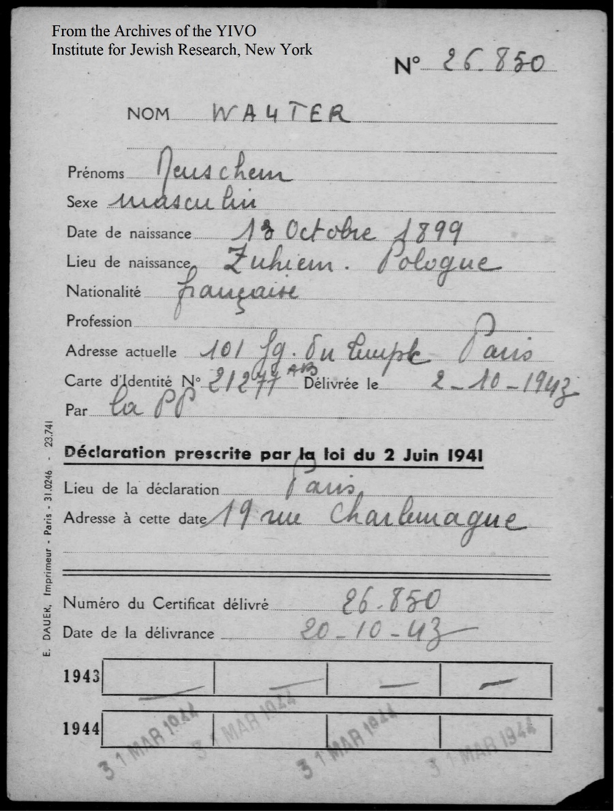 From the Archives of the YIVO
Institute for Jewish Research, New York
N° 26.850
NOM WAUTER
Prénoms
Sexe masculin
Date de naissance 13 Octobre 1899
Lieu de naissance Pologne
Nationalité française
Profession
Adresse actuelle 101 fg. du temple Paris
Carte d'Identité N° Délivrée le 2-10-1943
Par la PP
Déclaration prescrite par la loi du 2 Juin 1941
Lieu de la déclaration Paris
Adresse à cette date 19 rue Charlemagne
Numéro du Certificat délivré 26.850
Date de la délivrance 20-10-43
1943
1944
31 MAR 1944 31 MAR 1944 31 MAR 1944 31 MAR 1944
E. DAUEK, Imprimeur - Paris - 31.0246 - 23.741